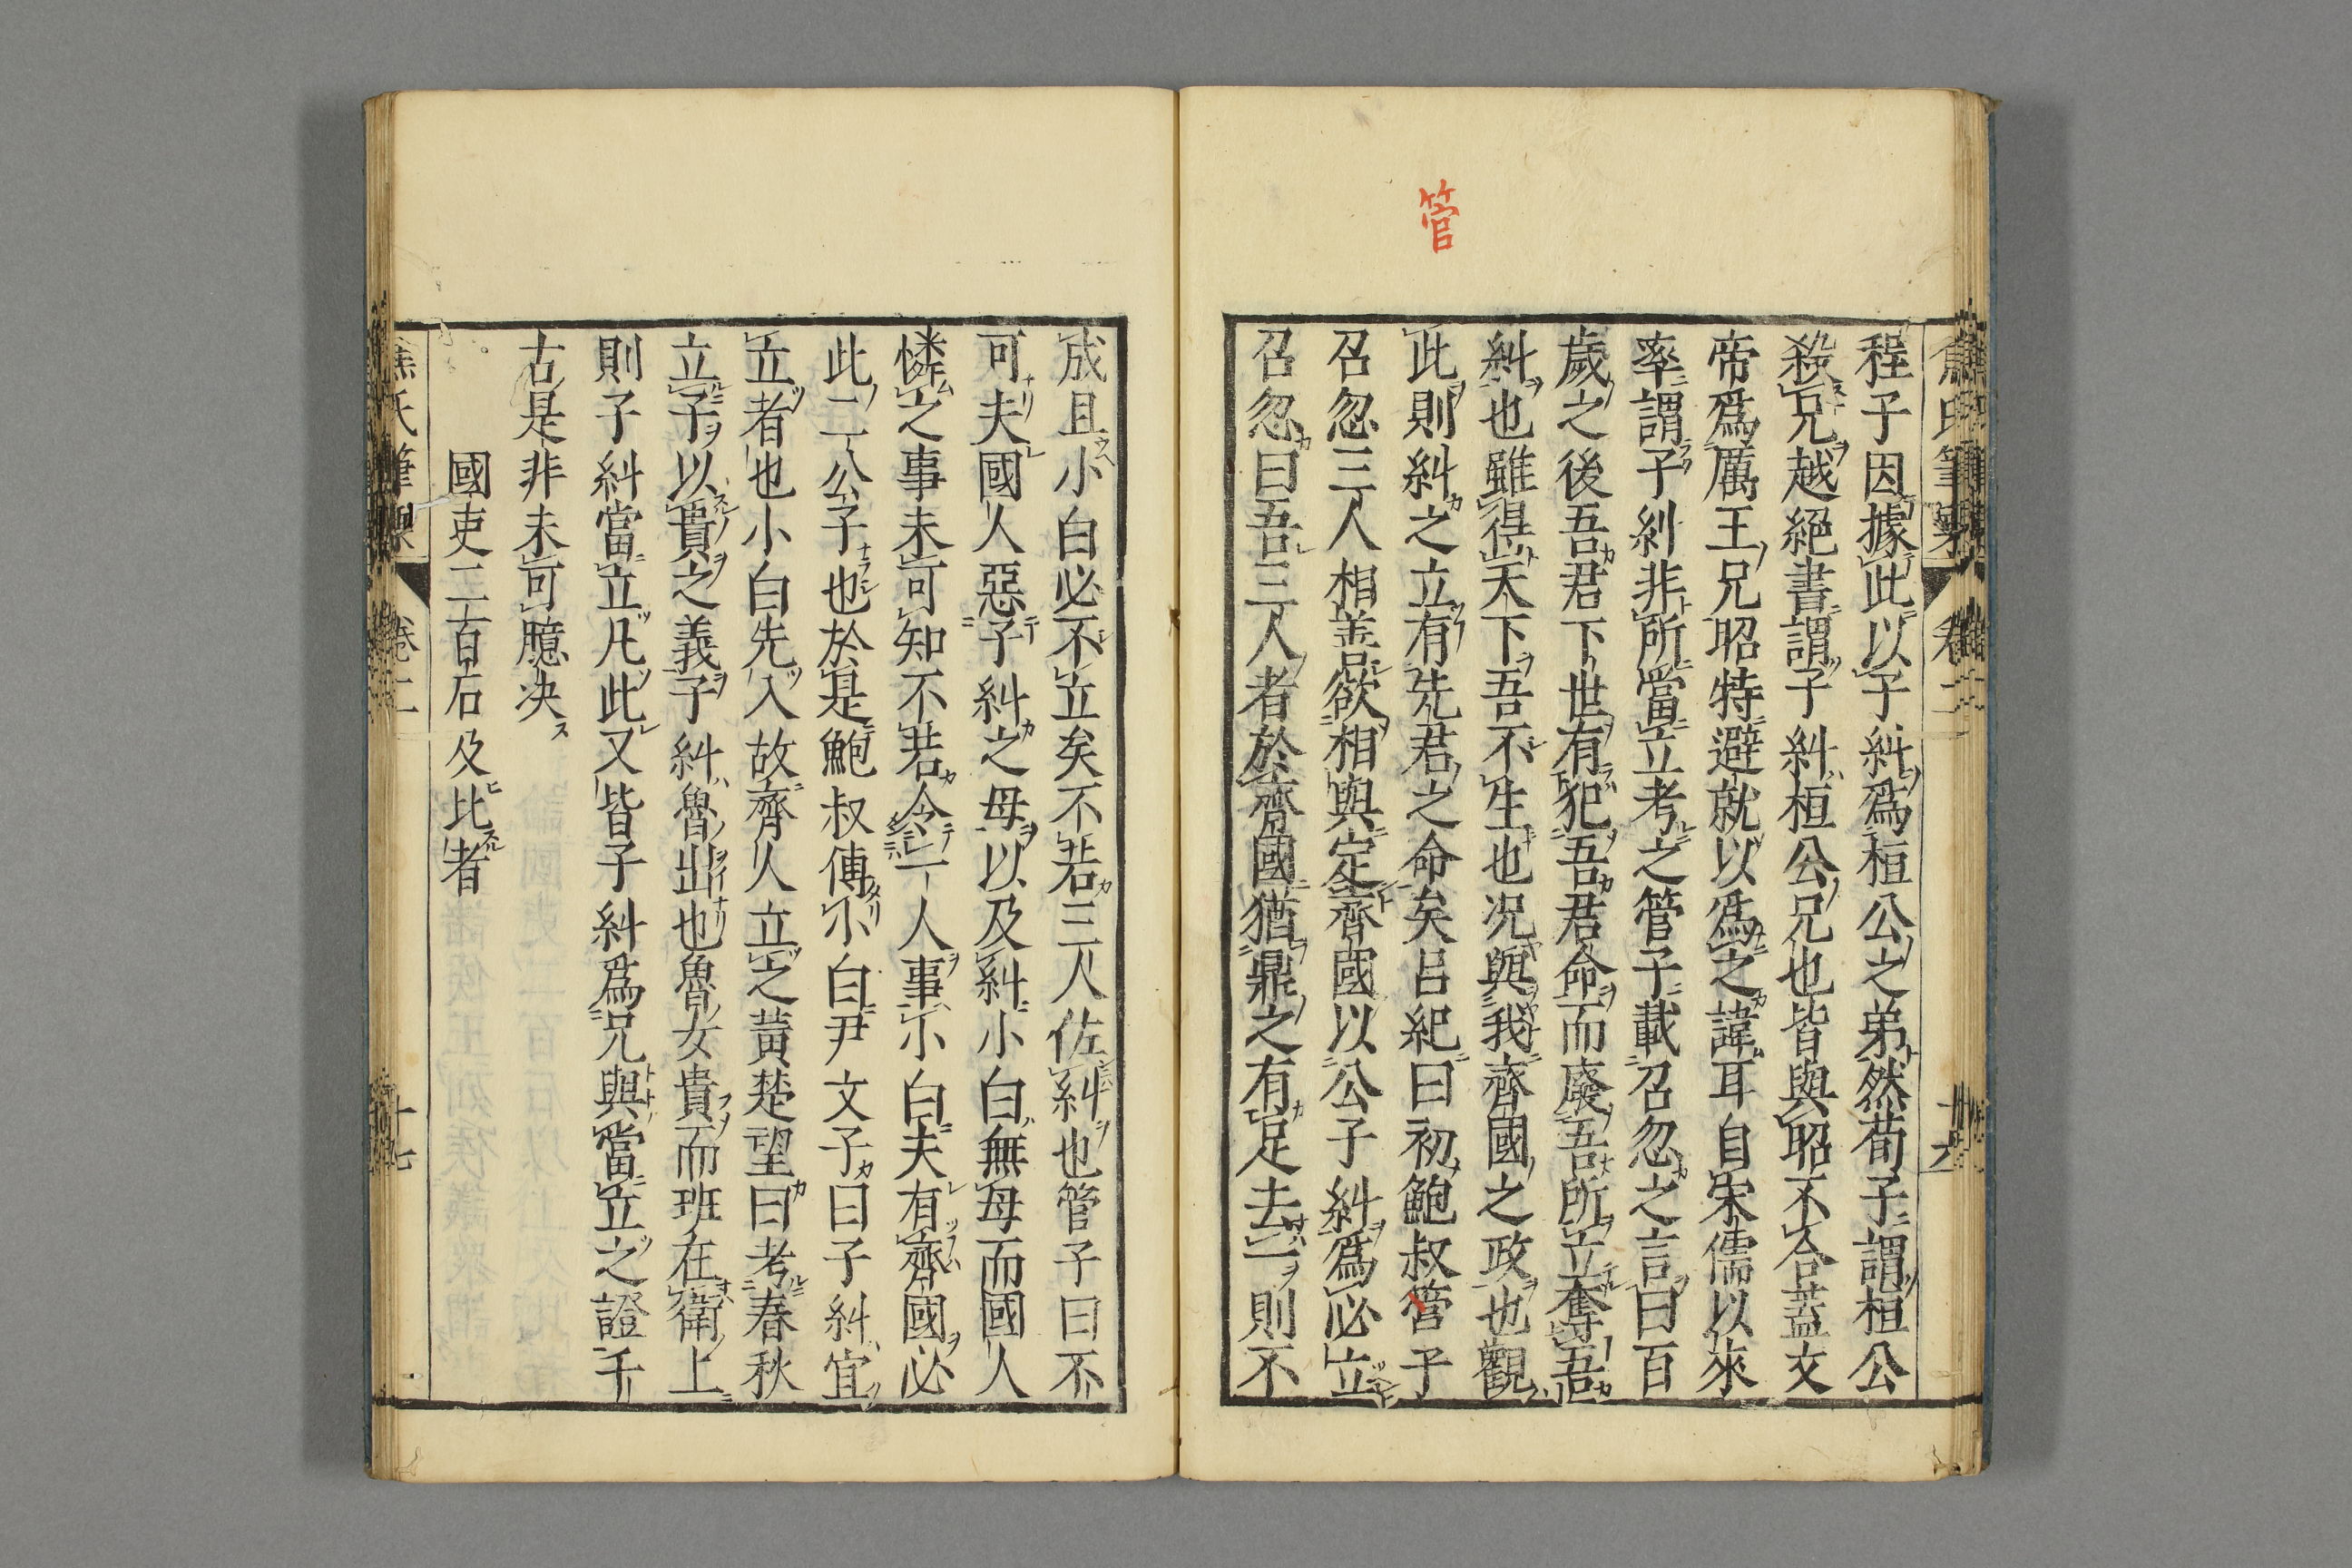 焦氏筆乘 卷二 十六
管
程子因據此以子糾爲桓公之弟然荀子謂桓公
殺兄越絕書謂子糾桓公兄也皆與昭不合蓋文
帝爲厲王兄昭特避就以爲之諱耳自宋儒以來
率謂子糾非所當立考之管子載召忽之言曰百
歲之後吾君下世有犯吾君命而廢吾所立奪吾
糾也雖得天下吾不生也况與我齊國之政也觀
此則糾之立有先君之命矣呂紀曰初鮑叔管子
召忽三人相善欲相與定齊國以公子糾爲必立
召忽曰吾三人者於齊國猶鼎之有足去一則不
成且小白必不立矣不若三人佐糾也管子曰不
可夫國人惡子糾之母以及糾小白無母而國人
憐之事未可知不若令一人事小白夫有齊國必
此二公子也於是鮑叔傅小白尹文子曰子糾宜
立者也小白先入故齊人立之黃楚望曰考春秋
立子以貴之義子糾魯出也魯女貴而班在衛上
則子糾當立凡此又皆子糾爲兄與當立之證千
古是非未可臆决
國吏二百石及比者
焦氏筆乘 卷二 十七